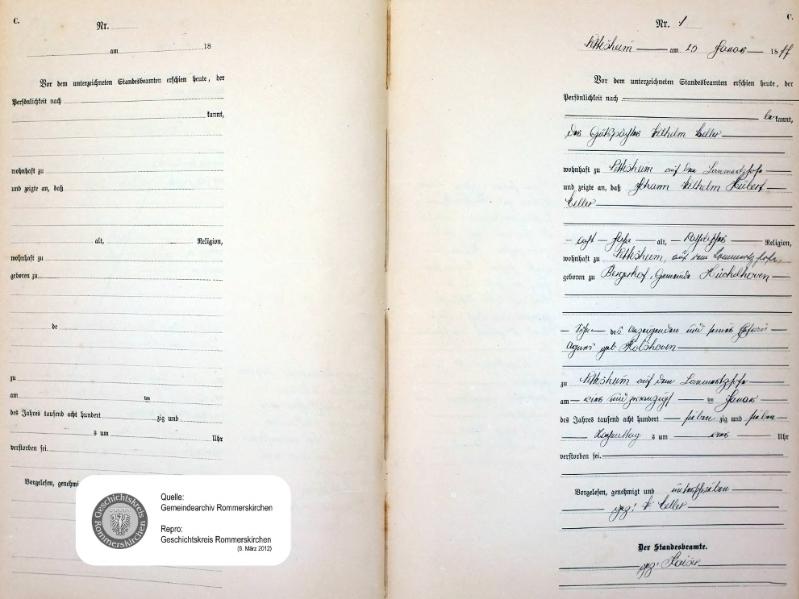 C.
Nr.
am 18
Vor dem unterzeichneten Standesbeamten erschien heute, der
Persönlichkeit nach
kannt,
wohnhaft zu
und zeigte an, daß
alt, Religion,
wohnhaft zu
geboren zu
de
zu
am im
des Jahres tausend acht hundert zig und
s um Uhr
verstorben sei.
Vorgelesen, genehmigt
Geschichtskreis Rommerskirchen
Quelle:
Gemeindearchiv Rommerskirchen
Repro:
Geschichtskreis Rommerskirchen
(9. März 2012)
C.
Nr. 1
am Januar 1877
Vor dem unterzeichneten Standesbeamten erschien heute, der
Persönlichkeit nach
bekannt,
der Gutspächter Wilhelm
wohnhaft zu auf dem
und zeigte an, daß Johann Wilhelm Hubert
acht Jahre alt, katholischer Religion,
wohnhaft zu auf dem
geboren zu Bergerhof, Gemeinde Hüchelhoven
Sohn des Anzeigenden und seiner Ehefrau
Agnes geb.
zu auf dem
am ein und zwanzigsten im Januar
des Jahres tausend acht hundert sieben zig und sieben
Nachmittags um Uhr
verstorben sei.
Vorgelesen, genehmigt und unterschrieben
gez: W
Der Standesbeamte.
gez: